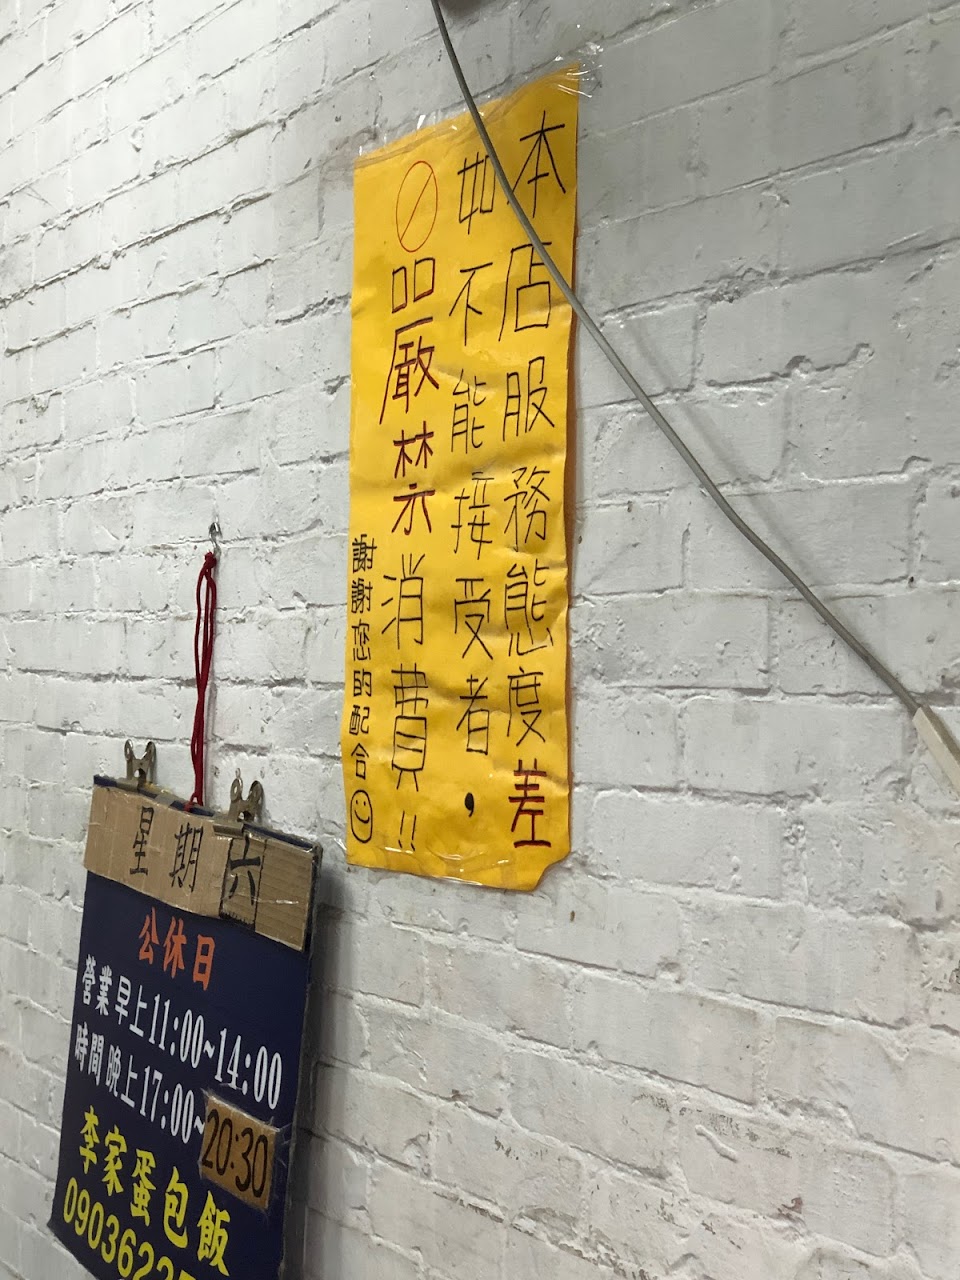 本店服務態度差
如不能接受者，
嚴禁消費!!
謝謝您的配合
星期六
公休日
營業 早上11:00~14:00
時間 晚上17:00~20:30
李家蛋包飯
09036225